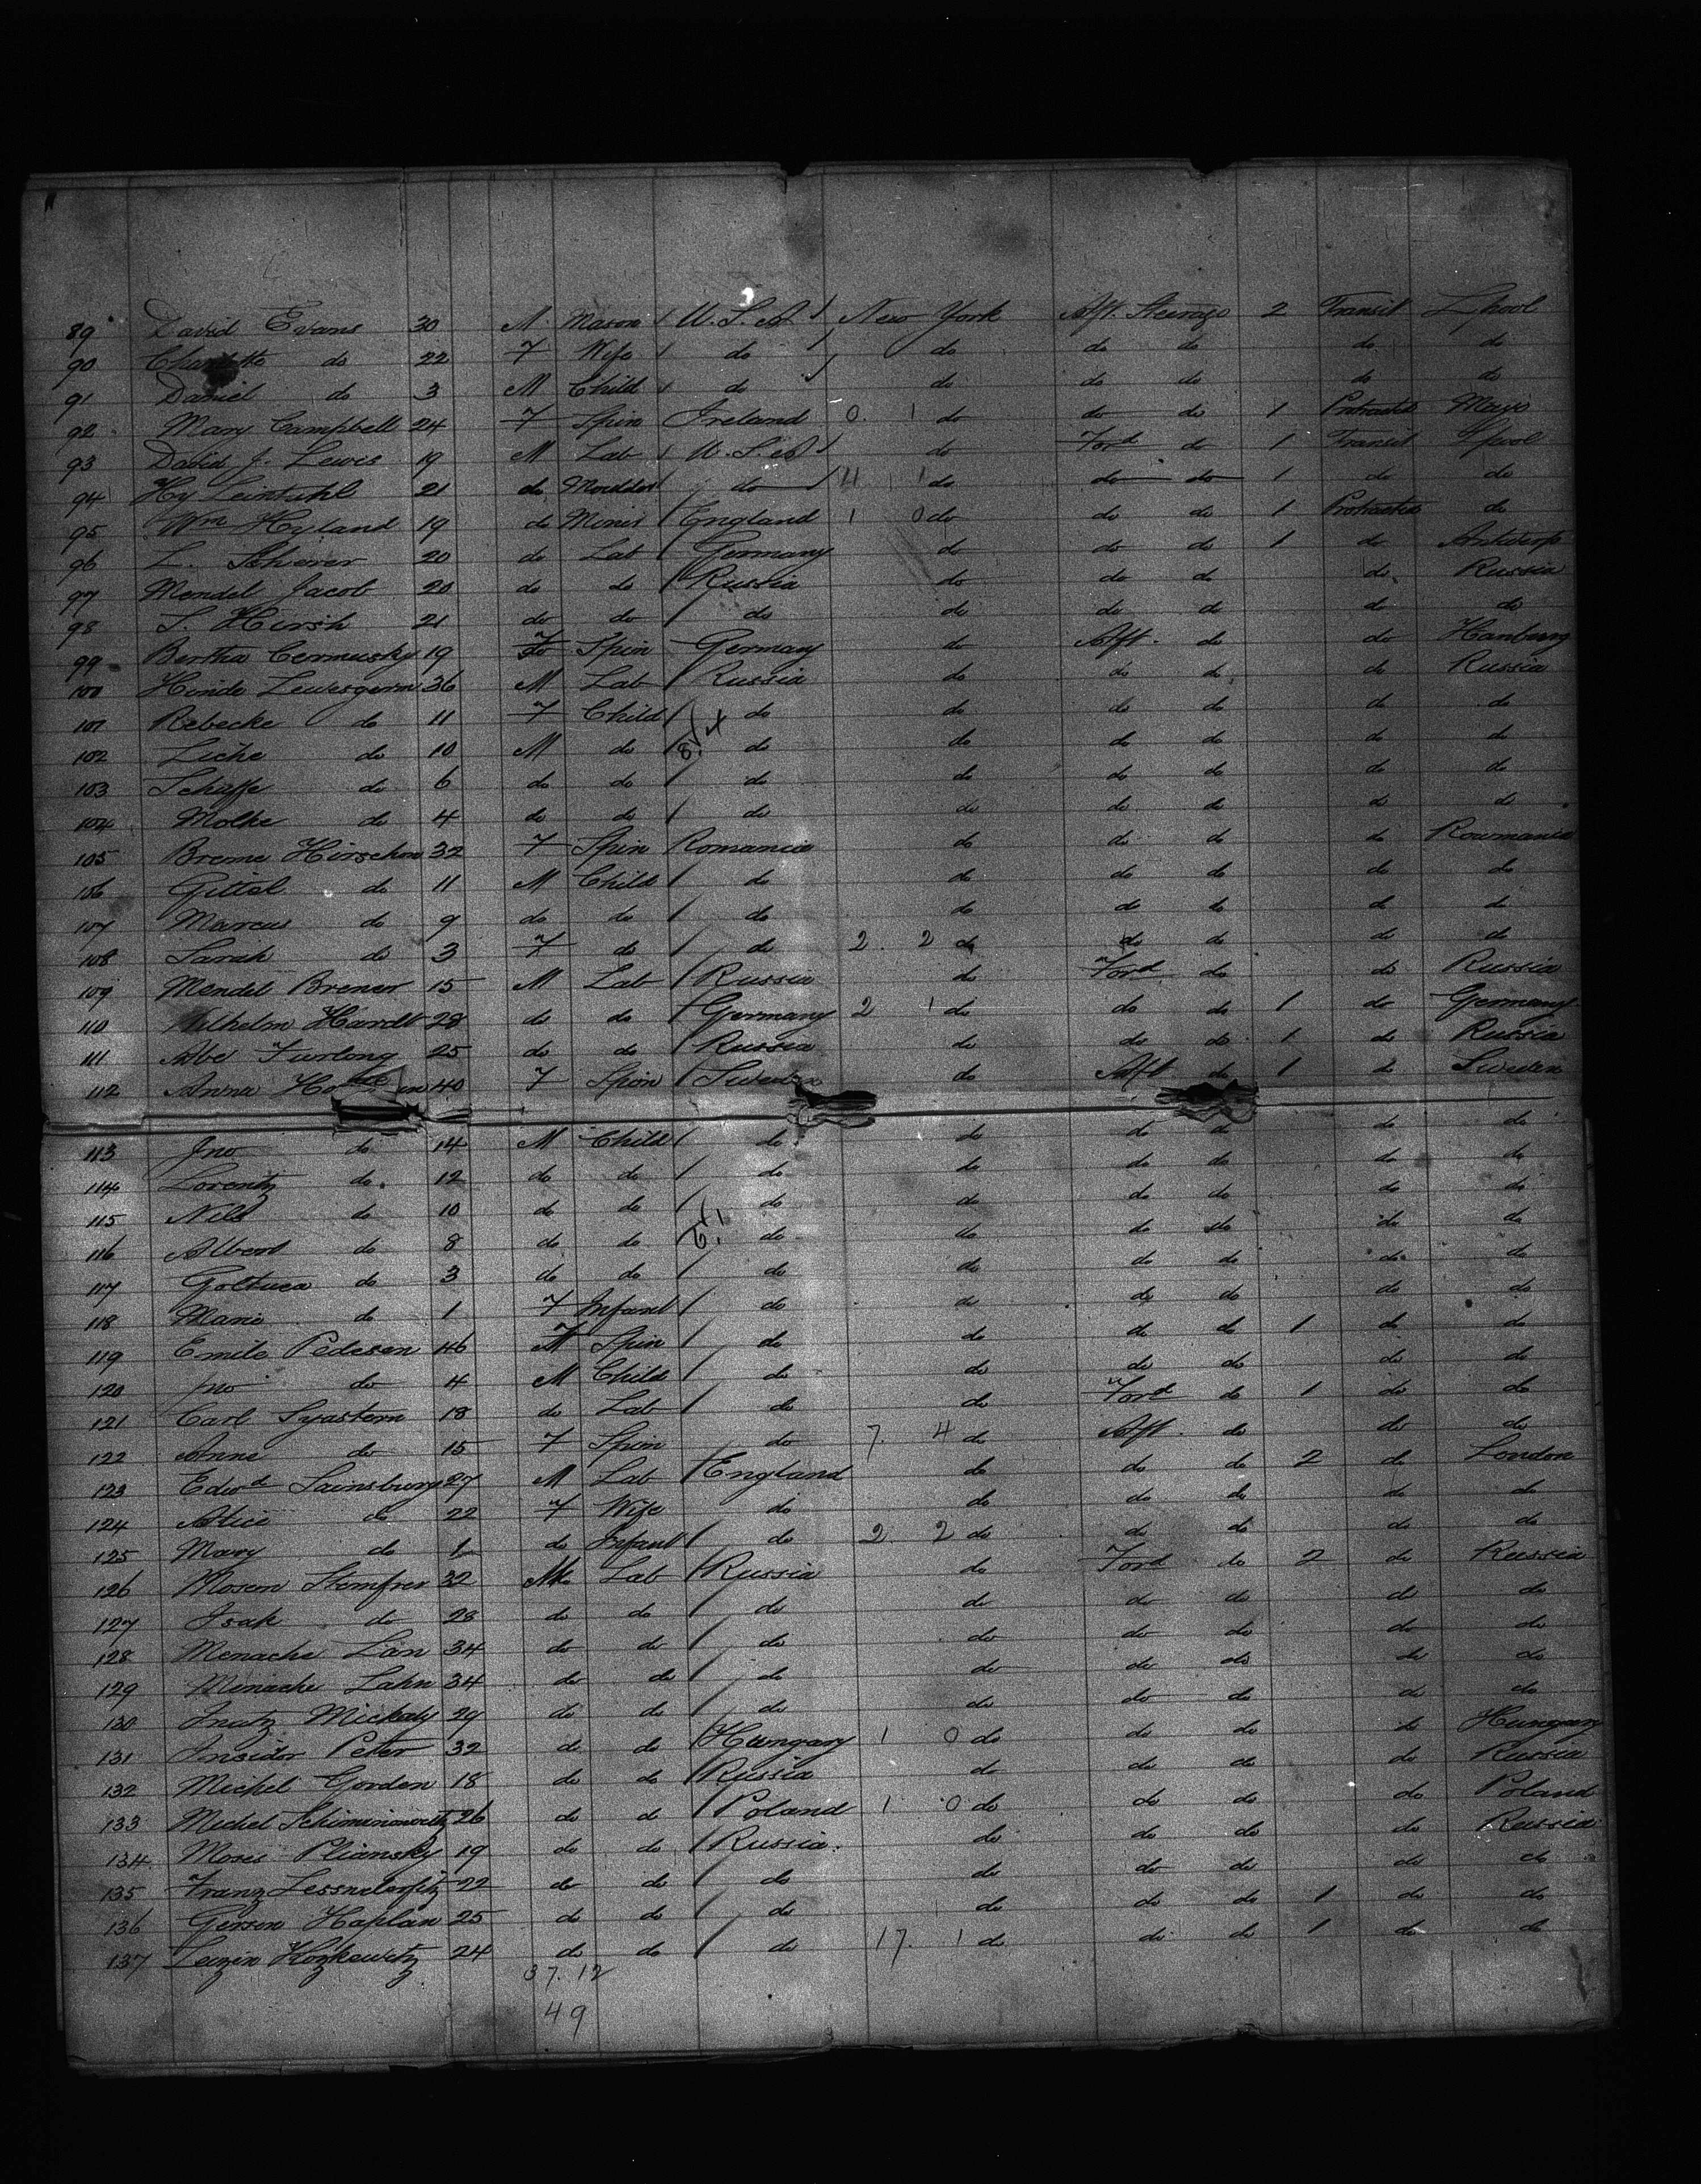 89 David Evans 30 M Mason U.S.A. New York Aft. Steerage 2 Transit Lpool
90 Charlotte do 22 F Wife do do do do do do
91 Daniel do 3 M Child do do do do do do
92 Mary Campbell 24 F Spin Ireland 0. 1 do do do 1 Protracted Mayo
93 David J. Lewis 19 M Lab U.S.A. do Ford do 1 Transit Lpool
94 Hy 21 do Moulder do 4 1 do do do 1 do do
95 Wm Hyland 19 do Miner England 1 0 do do do 1 Protracted do
96 L. Scherer 20 do Lab Germany do do do 1 do Antwerp
97 Mendel Jacob 20 do do Russia do do do do Russia
98 S. Hirsh 21 do do do do do do do do
99 Bertha Cermusky 19 F Spin Germany do Aft. do do Hamburg
100 Hinde 36 M Lab Russia do do do do Russia
101 Rebecke do 11 F Child do do do do do do
102 Liche do 10 M do do do do do do do
103 Schaffe do 6 do do do do do do do do
104 Molke do 4 do do do do do do do do
105 Breme Hirschon 32 F Spin Romania do do do do Rowmania
106 Gittel do 11 M Child do do do do do do
107 Marcus do 9 do do do do do do do do
108 Sarah do 3 F do do 2. 2 do do do do do
109 Mendel Brener 15 M Lab Russia do Ford do do Russia
110 Wilhelm Hardt 28 do do Germany 2 1 do do do 1 do Germany
111 Abe Furlong 25 do do Russia do do do 1 do Russia
112 Anna 40 F Spin Sweden do Aft do 1 do Sweden
113 Jno do 14 M Child do do do do do do
114 Lorentz do. 12 do do do do do do do do
115 Nils do 10 do do do do do do do do
116 Albert do 8 do do do do do do do do
117 do 3 do do do do do do do do
118 Marie do 1 F Infant do do do do do do
119 Emile Pedesen 46 F Spin do do do do 1 do do
120 Jno do 4 M Child do do do do do do
121 Carl Syastern 18 do Lab do do Ford do 1 do do
122 Anna do 15 F Spin do 7. 4 do Aft. do do do
123 Edwd Sainsbury 27 M Lab England do do do 2 do London
124 Alice do 22 F Wife do do do do do do
125 Mary do 1 do Infant do 2. 2 do do do do do
126 Mosem Stemfrer 32 M Lab Russia do Ford do 2 do Russia
127 Isak do 28 do do do do do do do do
128 Menache Län 34 do do do do do do do do
129 Minache Lahn 34 do do do do do do do do
130 Mickaly 29 do do do do do do do do
131 Peter 32 do do Hungary 1 0 do do do do Hungary
132 Michel Gorden 18 do do Russia do do do do Russia
133 Michel Schiminowitz 26 do do Poland 1 0 do do do do Poland
134 Moses Pliansky 19 do do Russia. do do do do Russia
135 Franz 22 do do do do do do do do
136 Gerson Kaplan 25 do do do do do do 1 do do
137 Leizin Kozkewitz 24 do do do 17. 1 do do do 1 do do
37. 12
49